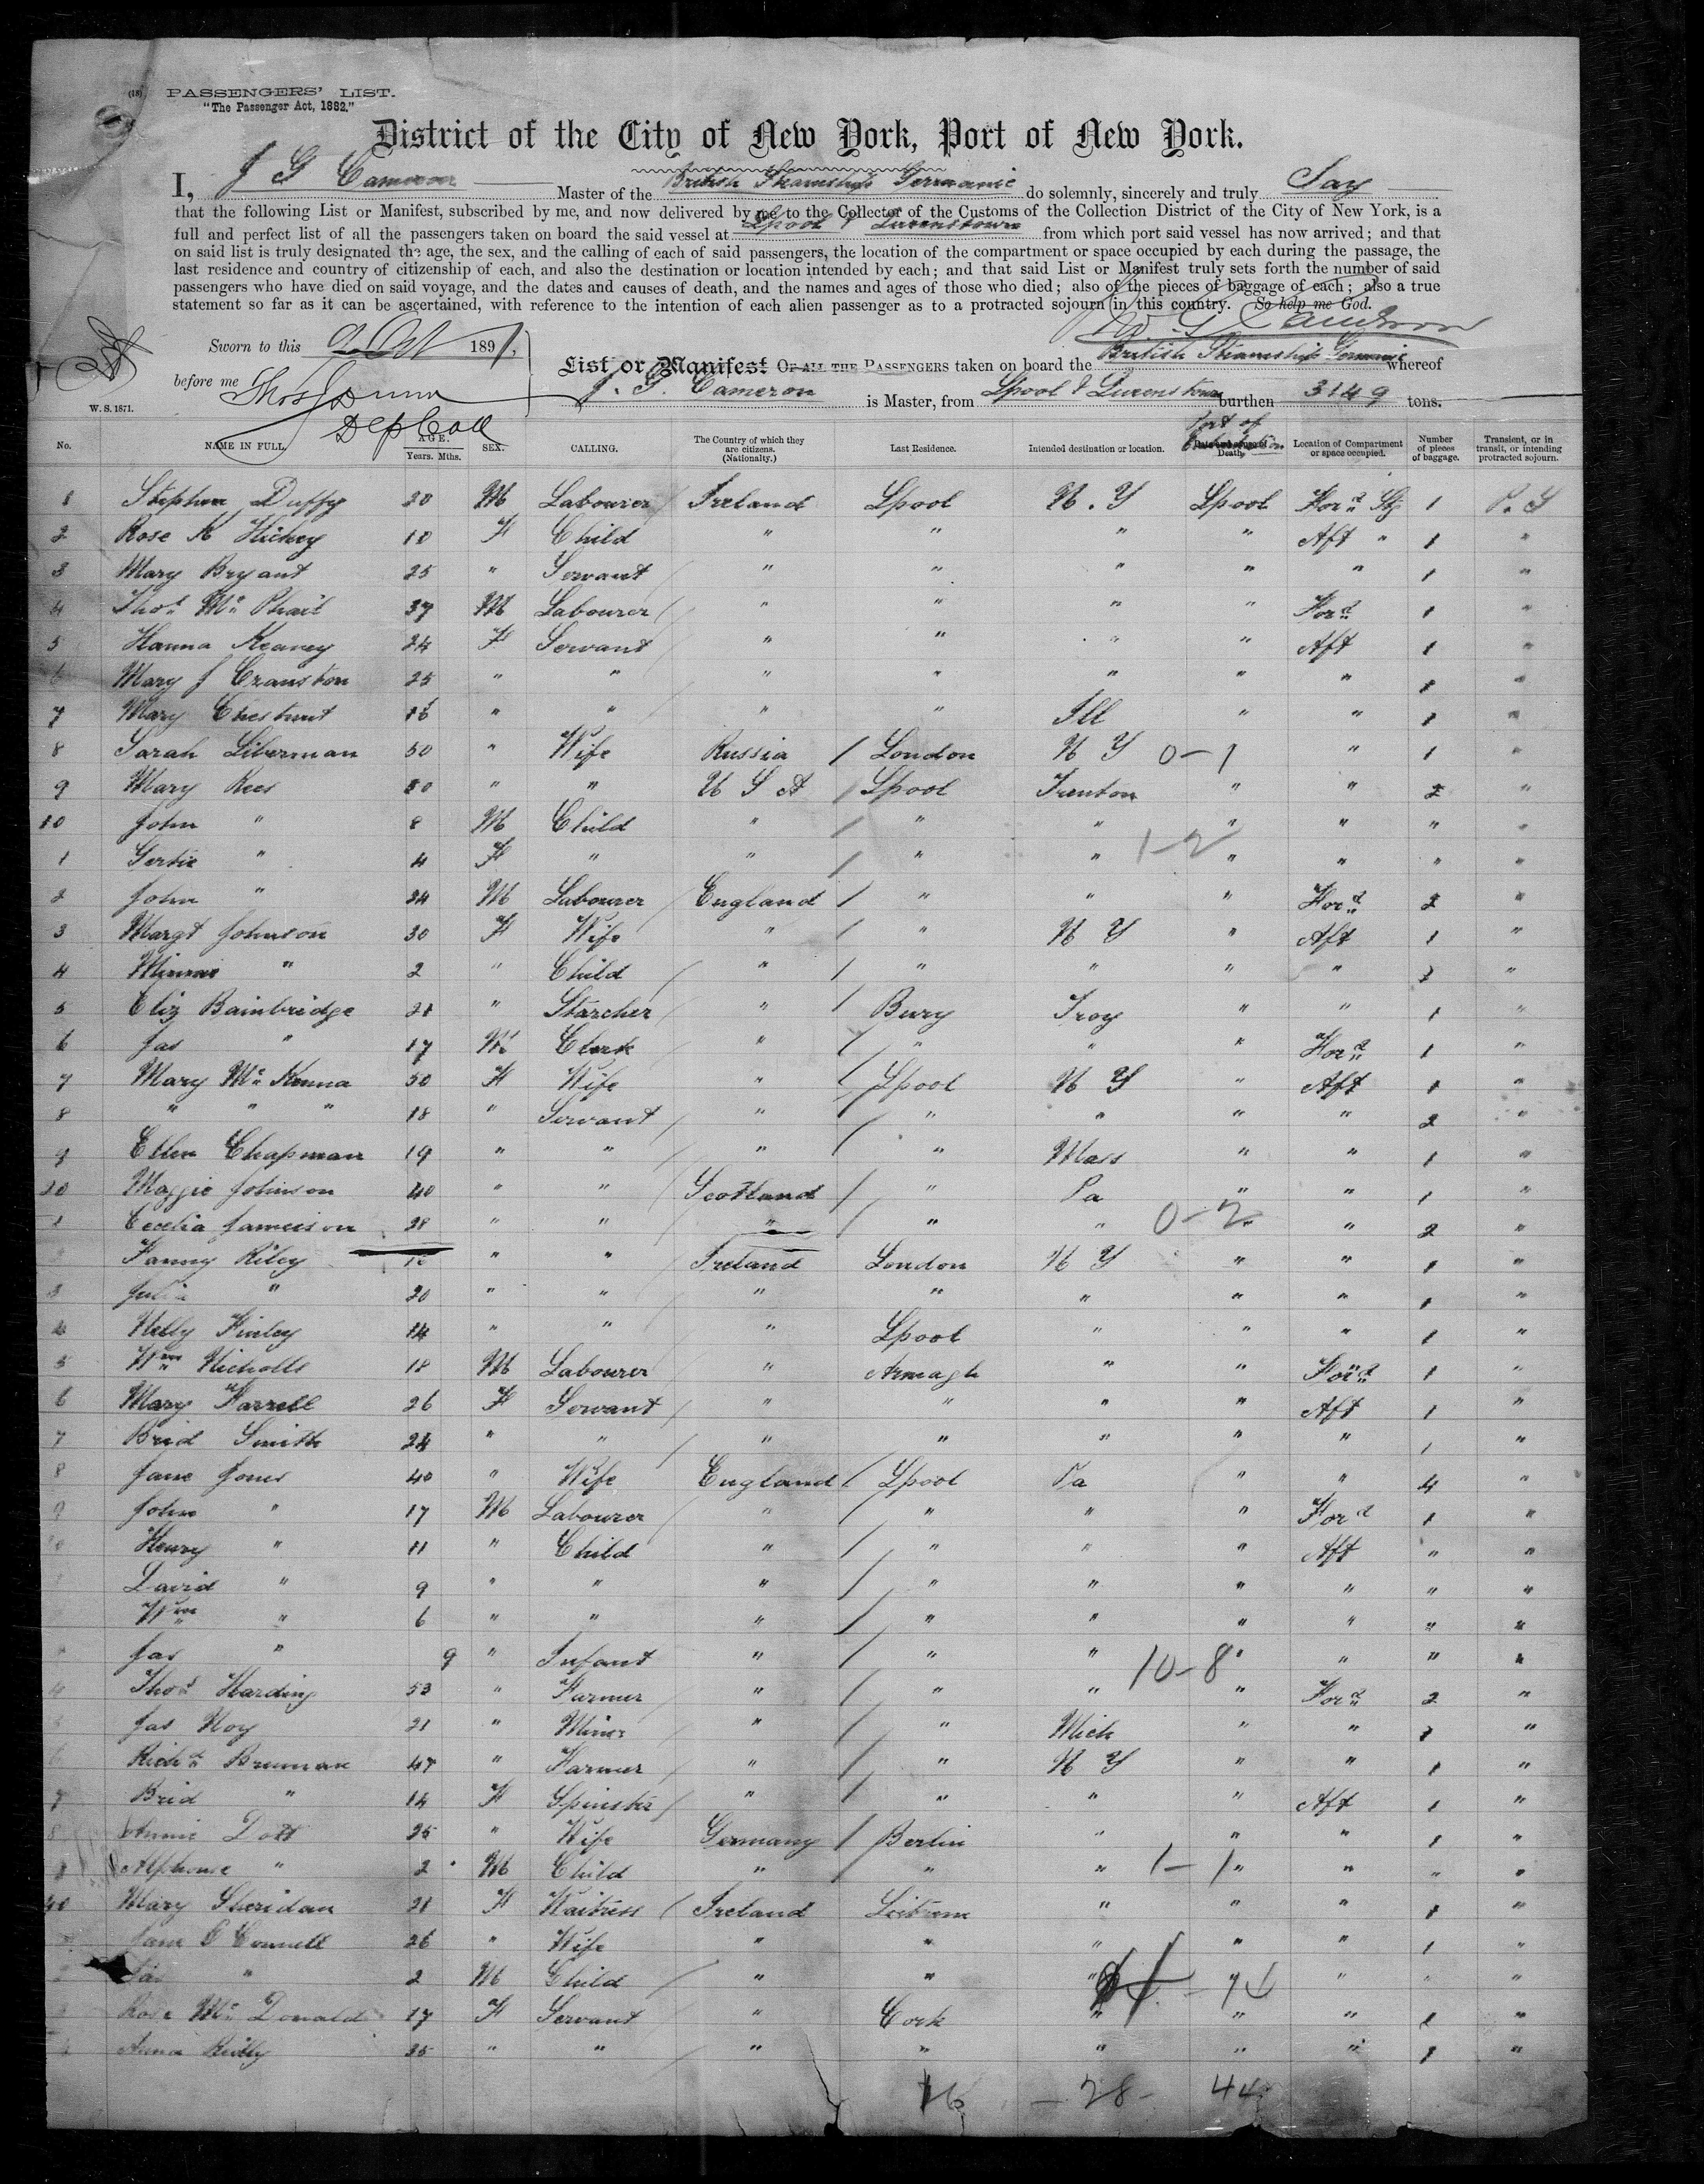 (18) PASSENGERS' LIST.
"The Passenger Act, 1882."
District of the City of New York, Port of New York.
I, J G Cameron Master of the British Steamship Germanic do solemnly, sincerely and truly Say
that the following List or Manifest, subscribed by me, and now delivered by me to the Collector of the Customs of the Collection District of the City of New York, is a
full and perfect list of all the passengers taken on board the said vessel at Lpool & Queenstown from which port said vessel has now arrived; and that
on said list is truly designated the age, the sex, and the calling of each of said passengers, the location of the compartment or space occupied by each during the passage, the
last residence and country of citizenship of each, and also the destination or location intended by each; and that said List or Manifest truly sets forth the number of said
passengers who have died on said voyage, and the dates and causes of death, and the names and ages of those who died; also of the pieces of baggage of each; also a true
statement so far as it can be ascertained, with reference to the intention of each alien passenger as to a protracted sojourn in this country. So help me God.
Sworn to this 2 Oct 1891,
before me Thos Dunn
Dep Coll
W. S. 1871.
List or Manifest OF ALL THE PASSENGERS taken on board the British Steamship Germanic whereof
J. G. Cameron is Master, from Lpool & Queenstown burthen 3149 tons.
No. NAME IN FULL. AGE. Years. Mths. SEX. CALLING. The Country of which they are citizens. (Nationality.) Last Residence. Intended destination or location. Port of Date and cause of Death. Location of Compartment or space occupied. Number of pieces of baggage. Transient, or in transit, or intending protracted sojourn.
1 Stephen Duffy 20 M Labourer Ireland Lpool N.Y Lpool For'd Stg 1 P.S
2 Rose K Hickey 10 F Child " " " " Aft " 1 "
3 Mary Bryant 25 " Servant " " " " " 1 "
4 Thos Mc Phail 37 M Labourer " " " " For'd 1 "
5 Hanna Keaney 24 F Servant " " " " Aft 1 "
6 Mary J Cranston 25 " " " " " " " 1 "
7 Mary Chestnut 16 " " " " Ill " " 1 "
8 Sarah Liberman 50 " Wife Russia London N Y 0-1 " 1 "
9 Mary Rees " " U S A Lpool Trenton " " 2 "
10 John " 8 M Child " " " " " " "
1 Gertie " 4 F " " " " 1-2 " " " "
2 John " 24 M Labourer England " " " For'd 2 "
3 Margt Johnson 30 F Wife " " N Y " Aft 1 "
4 Minnie " 2 " Child " " " " " 1 "
5 Eliz Bainbridge 21 " Starcher " Bury Troy " " 1 "
6 Jas " 17 M Clerk " " " " For'd 1 "
7 Mary Mc Kenna 50 F Wife " Lpool N Y " Aft 1 "
8 " " " 18 " Servant " " " " " 2 "
9 Ellen Chapman 19 " " " " Mass " " 1 "
20 Maggie Johnson 40 " " Scotland " Pa " " 1 "
1 Cecelia Jameison 28 " " " " " 0-2 " " 2 "
Fanny Riley " " Ireland London N Y " " 1 "
3 Julia " 20 " " " " " " " 1 "
4 Nelly Finley 14 " " " Lpool " " " 1 "
5 Wm Nicholls 18 M Labourer " Armagh " " For'd 1 "
6 Mary Farrell 26 F Servant " " " " Aft 1 "
7 Brid Smith 24 " " " " " " " 1 "
8 Jane Jones 40 " Wife England Lpool Pa " " 4 "
9 John " 17 M Labourer " " " " For'd 1 "
Henry " 11 " Child " " " " Aft " "
David " 9 " " " " " " " " "
Wm " 6 " " " " " " " " "
Jas " 9 " Infant " " " 10-8 " " " "
4 Thos Harding 53 " Farmer " " " " For'd 2 "
Jas Hoy 21 " Miner " " Mich " " 1 "
6 Richd Brennan 47 " Farmer " " N Y " " 1 "
7 Brid " 14 F Spinster " " " " Aft 1 "
8 Annie Dott 25 " Wife Germany Berlin " " " 1 "
9 Alphonse " 2 M Child " " " 1-1 " " " "
40 Mary Sheridan 21 F Waitress Ireland Leitrim " " " 1 "
Jane O'Connell 26 " Wife " " " " " 1 "
Jas " 2 M Child " " " 4-14 " " " "
Rose Mc Donald 17 F Servant " Cork " " " 1 "
Anna Reilly 35 " " " " " " " 1 "
16 - 28 - 44